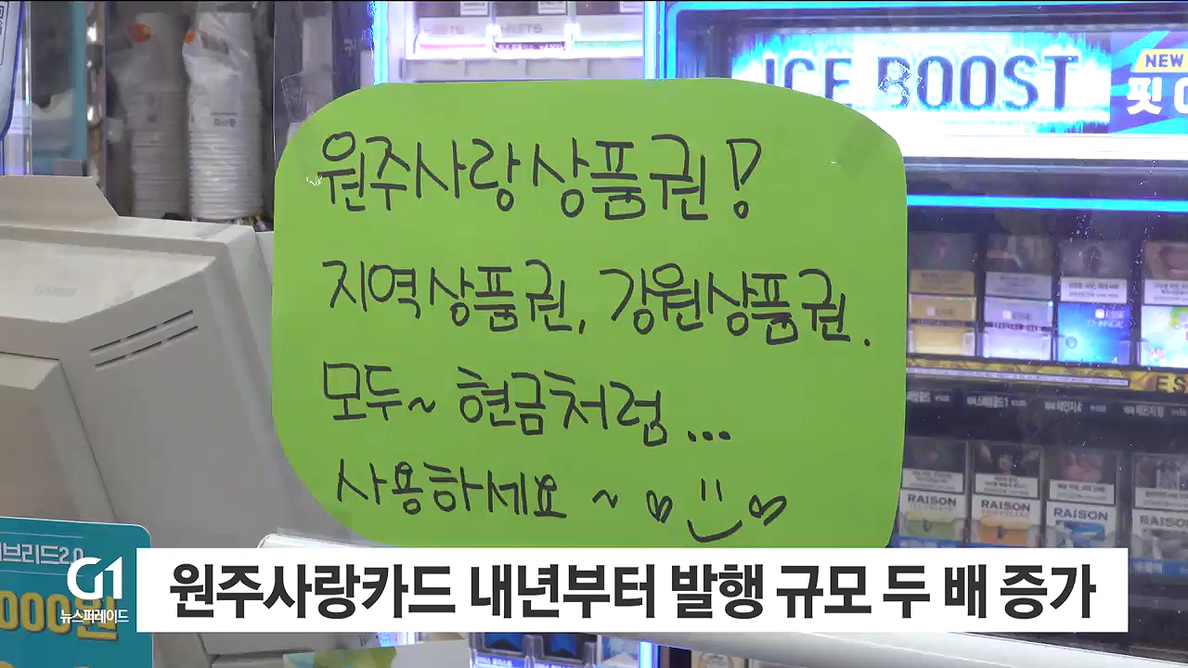 ICE BOOST
NEW
핏
원주사랑상품권!
지역상품권, 강원상품권.
모두~ 현금처럼...
사용하세요~
ESSE
ESSE
RAISON
RAISON
RAISON
RAISON
브리드2.0
000원
G1
뉴스퍼레이드
원주사랑카드 내년부터 발행 규모 두 배 증가